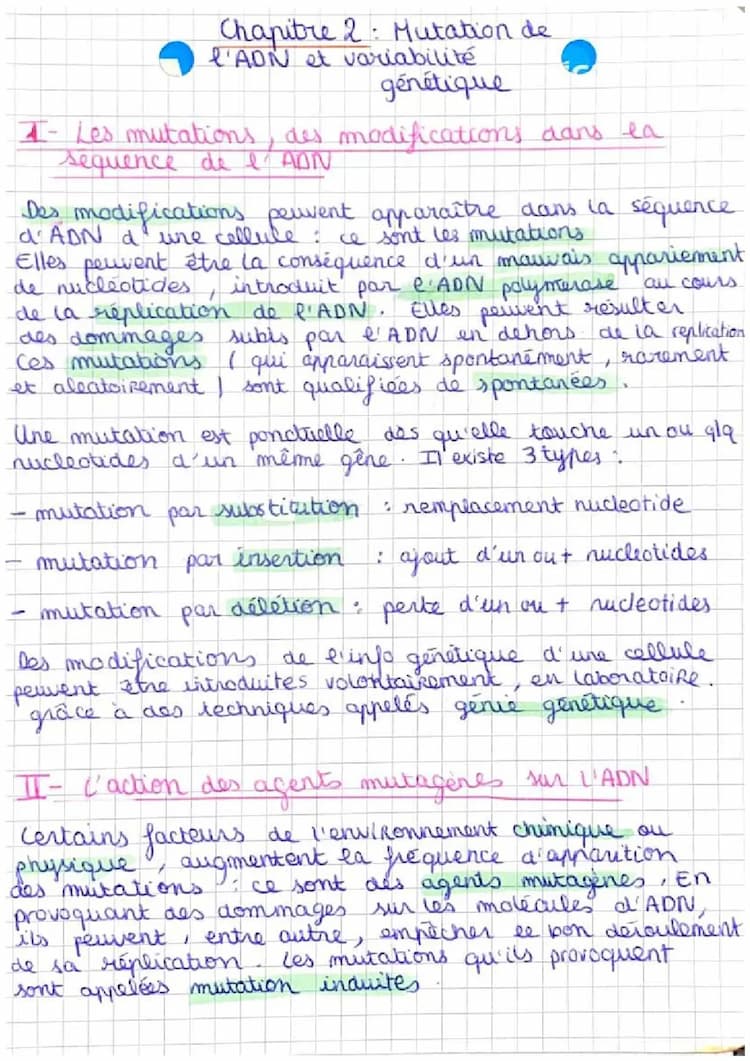 Chapitre 2 : Mutation de
l'ADN et variabilité
génétique
I- Les mutations, des modifications dans la
séquence de l'ADN
Des modifications peuvent apparaître dans la séquence
d'ADN d'une cellule : ce sont les mutations
Elles peuvent être la conséquence d'un mauvais appariement
de nucléotides, introduit par l'ADN polymerase au cours
de la réplication de l'ADN. Elles peuvent résulter
des dommages subis par l'ADN en dehors de la replication
Ces mutations ( qui apparaissent spontanément, rarement
et aleatoirement ) sont qualifiées de spontanées.
Une mutation est ponctuelle dès qu'elle touche un ou qlq
nucleotides d'un même gêne. Il existe 3 types :
- mutation par substitution : remplacement nucleotide
- mutation par insertion : ajout d'un ou + nucleotides
- mutation par délétion : perte d'un ou + nucleotides
Des modifications de l'info génétique d'une cellule
peuvent être introduites volontairement, en laboratoire.
grâce à des techniques appelés génie génétique.
II- L'action des agents mutagènes sur l'ADN
Certains facteurs de l'environnement chimique ou
physique, augmentent la fréquence d'apparition
des mutations : ce sont des agents mutagènes. En
provoquant des dommages sur les molécules d'ADN,
ils peuvent, entre autre, empêcher le bon déroulement
de sa réplication. Les mutations qu'ils provoquent
sont appelées mutation induites.